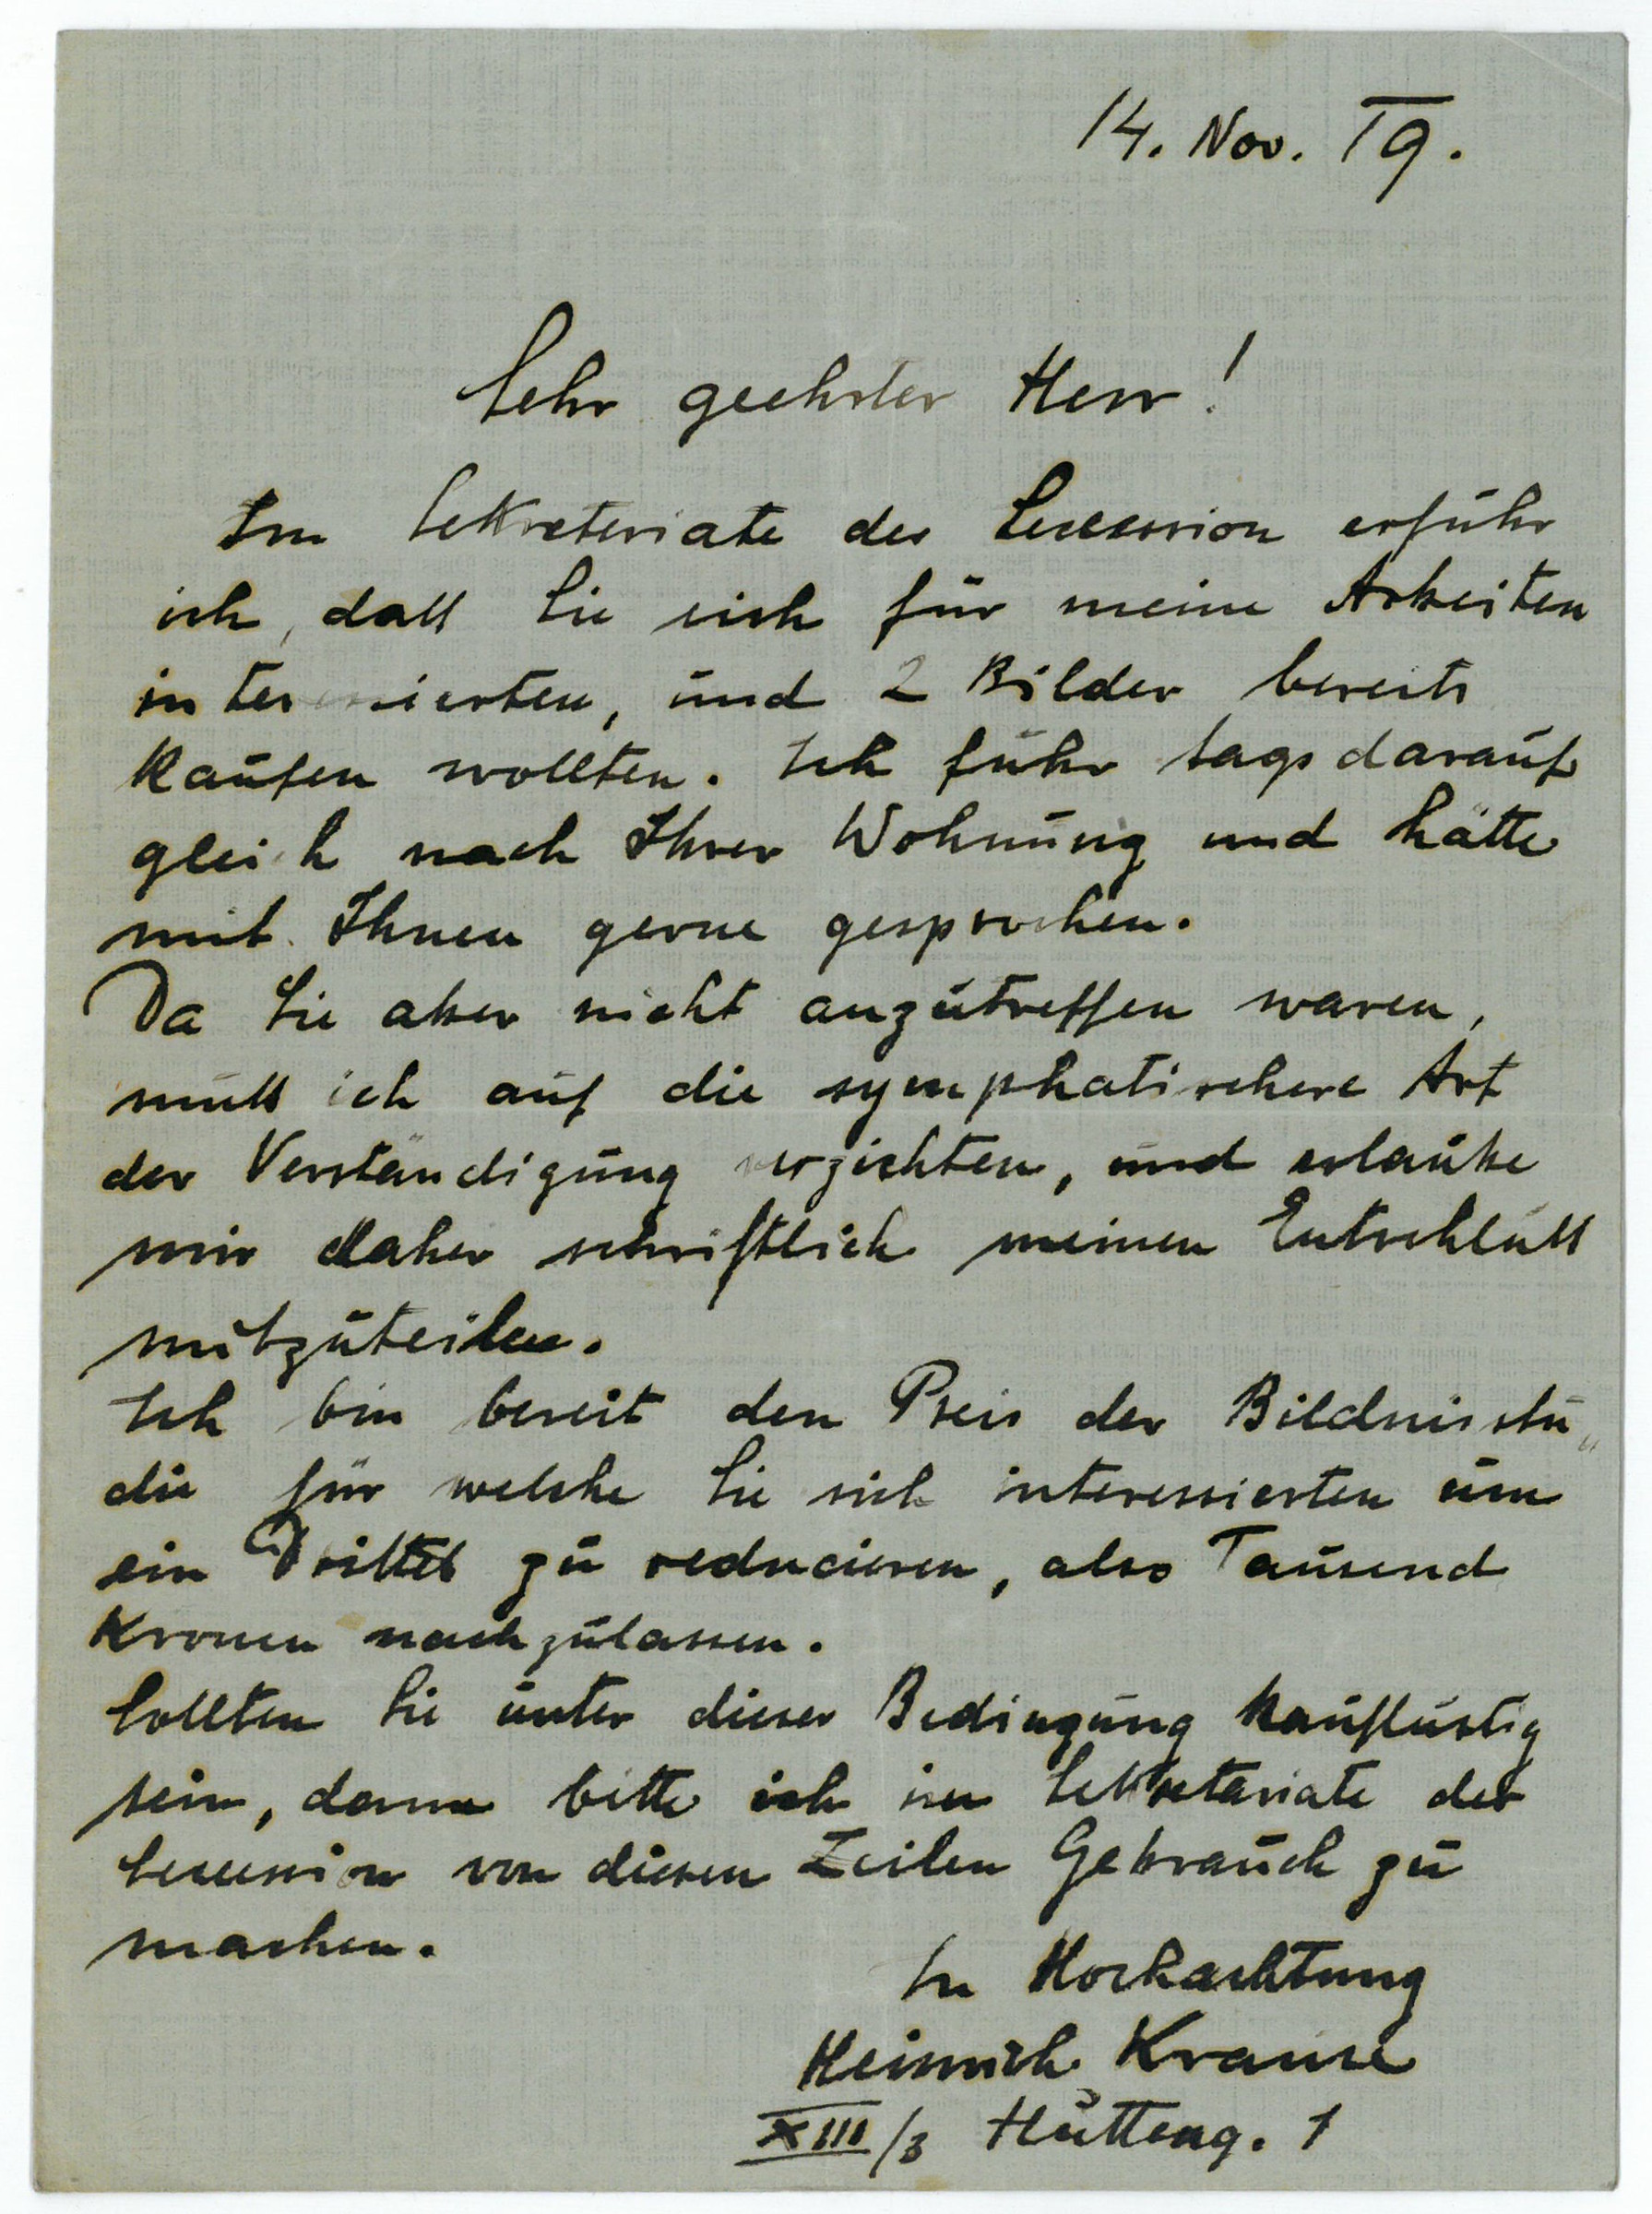 14. Nov. 19.
Sehr geehrter Herr!
Im Sekreteriate der Secession erfuhr
ich, daß Sie sich für meine Arbeiten
interessierten, und 2 Bilder bereits
kaufen wollten. Ich fuhr tagsdarauf
gleich nach Ihrer Wohnung und hätte
mit Ihnen gerne gesprochen.
Da Sie aber nicht anzutreffen waren,
muß ich auf die symphatischere Art
der Verständigung verzichten, und erlaube
mir daher schriftlich meinen Entschluß
mitzuteilen.
Ich bin bereit den Preis der Bildnisstu„
die für welche Sie sich interessierten um
ein Drittel zu reducieren, also Tausend
Kronen nachzulassen.
Sollten Sie unter dieser Bedingung kauflustig
sein, dann bitte ich im Sekretariate der
Secession von diesen Zeilen Gebrauch zu
machen.
In Hochachtung
Heinrich Krause
XIII/3 Hütteng. 1